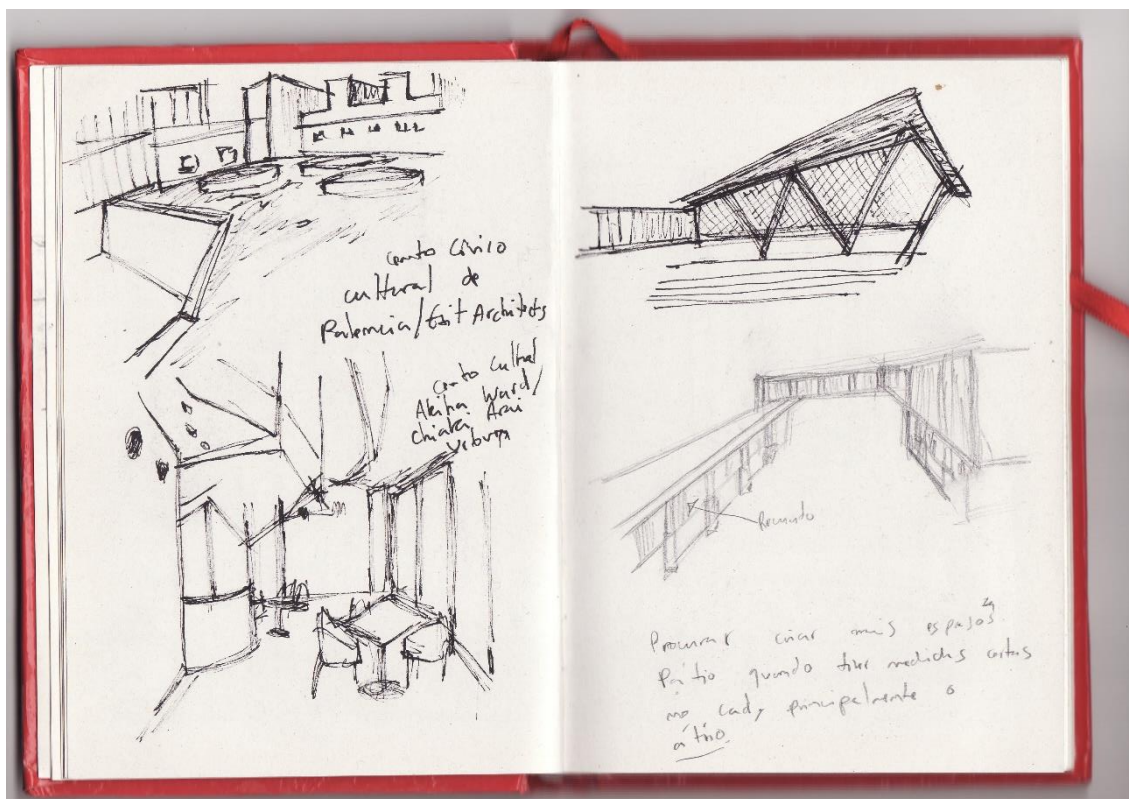 Centro Cívico
cultural de
Palencia/Exit Architects
Centro Cultural
Akiha Ward/
Chiaki Arai
Urban
Recuando
Procurar criar mais espaços
Pátio quando tiver medidas certas
no cad, principalmente o
átrio